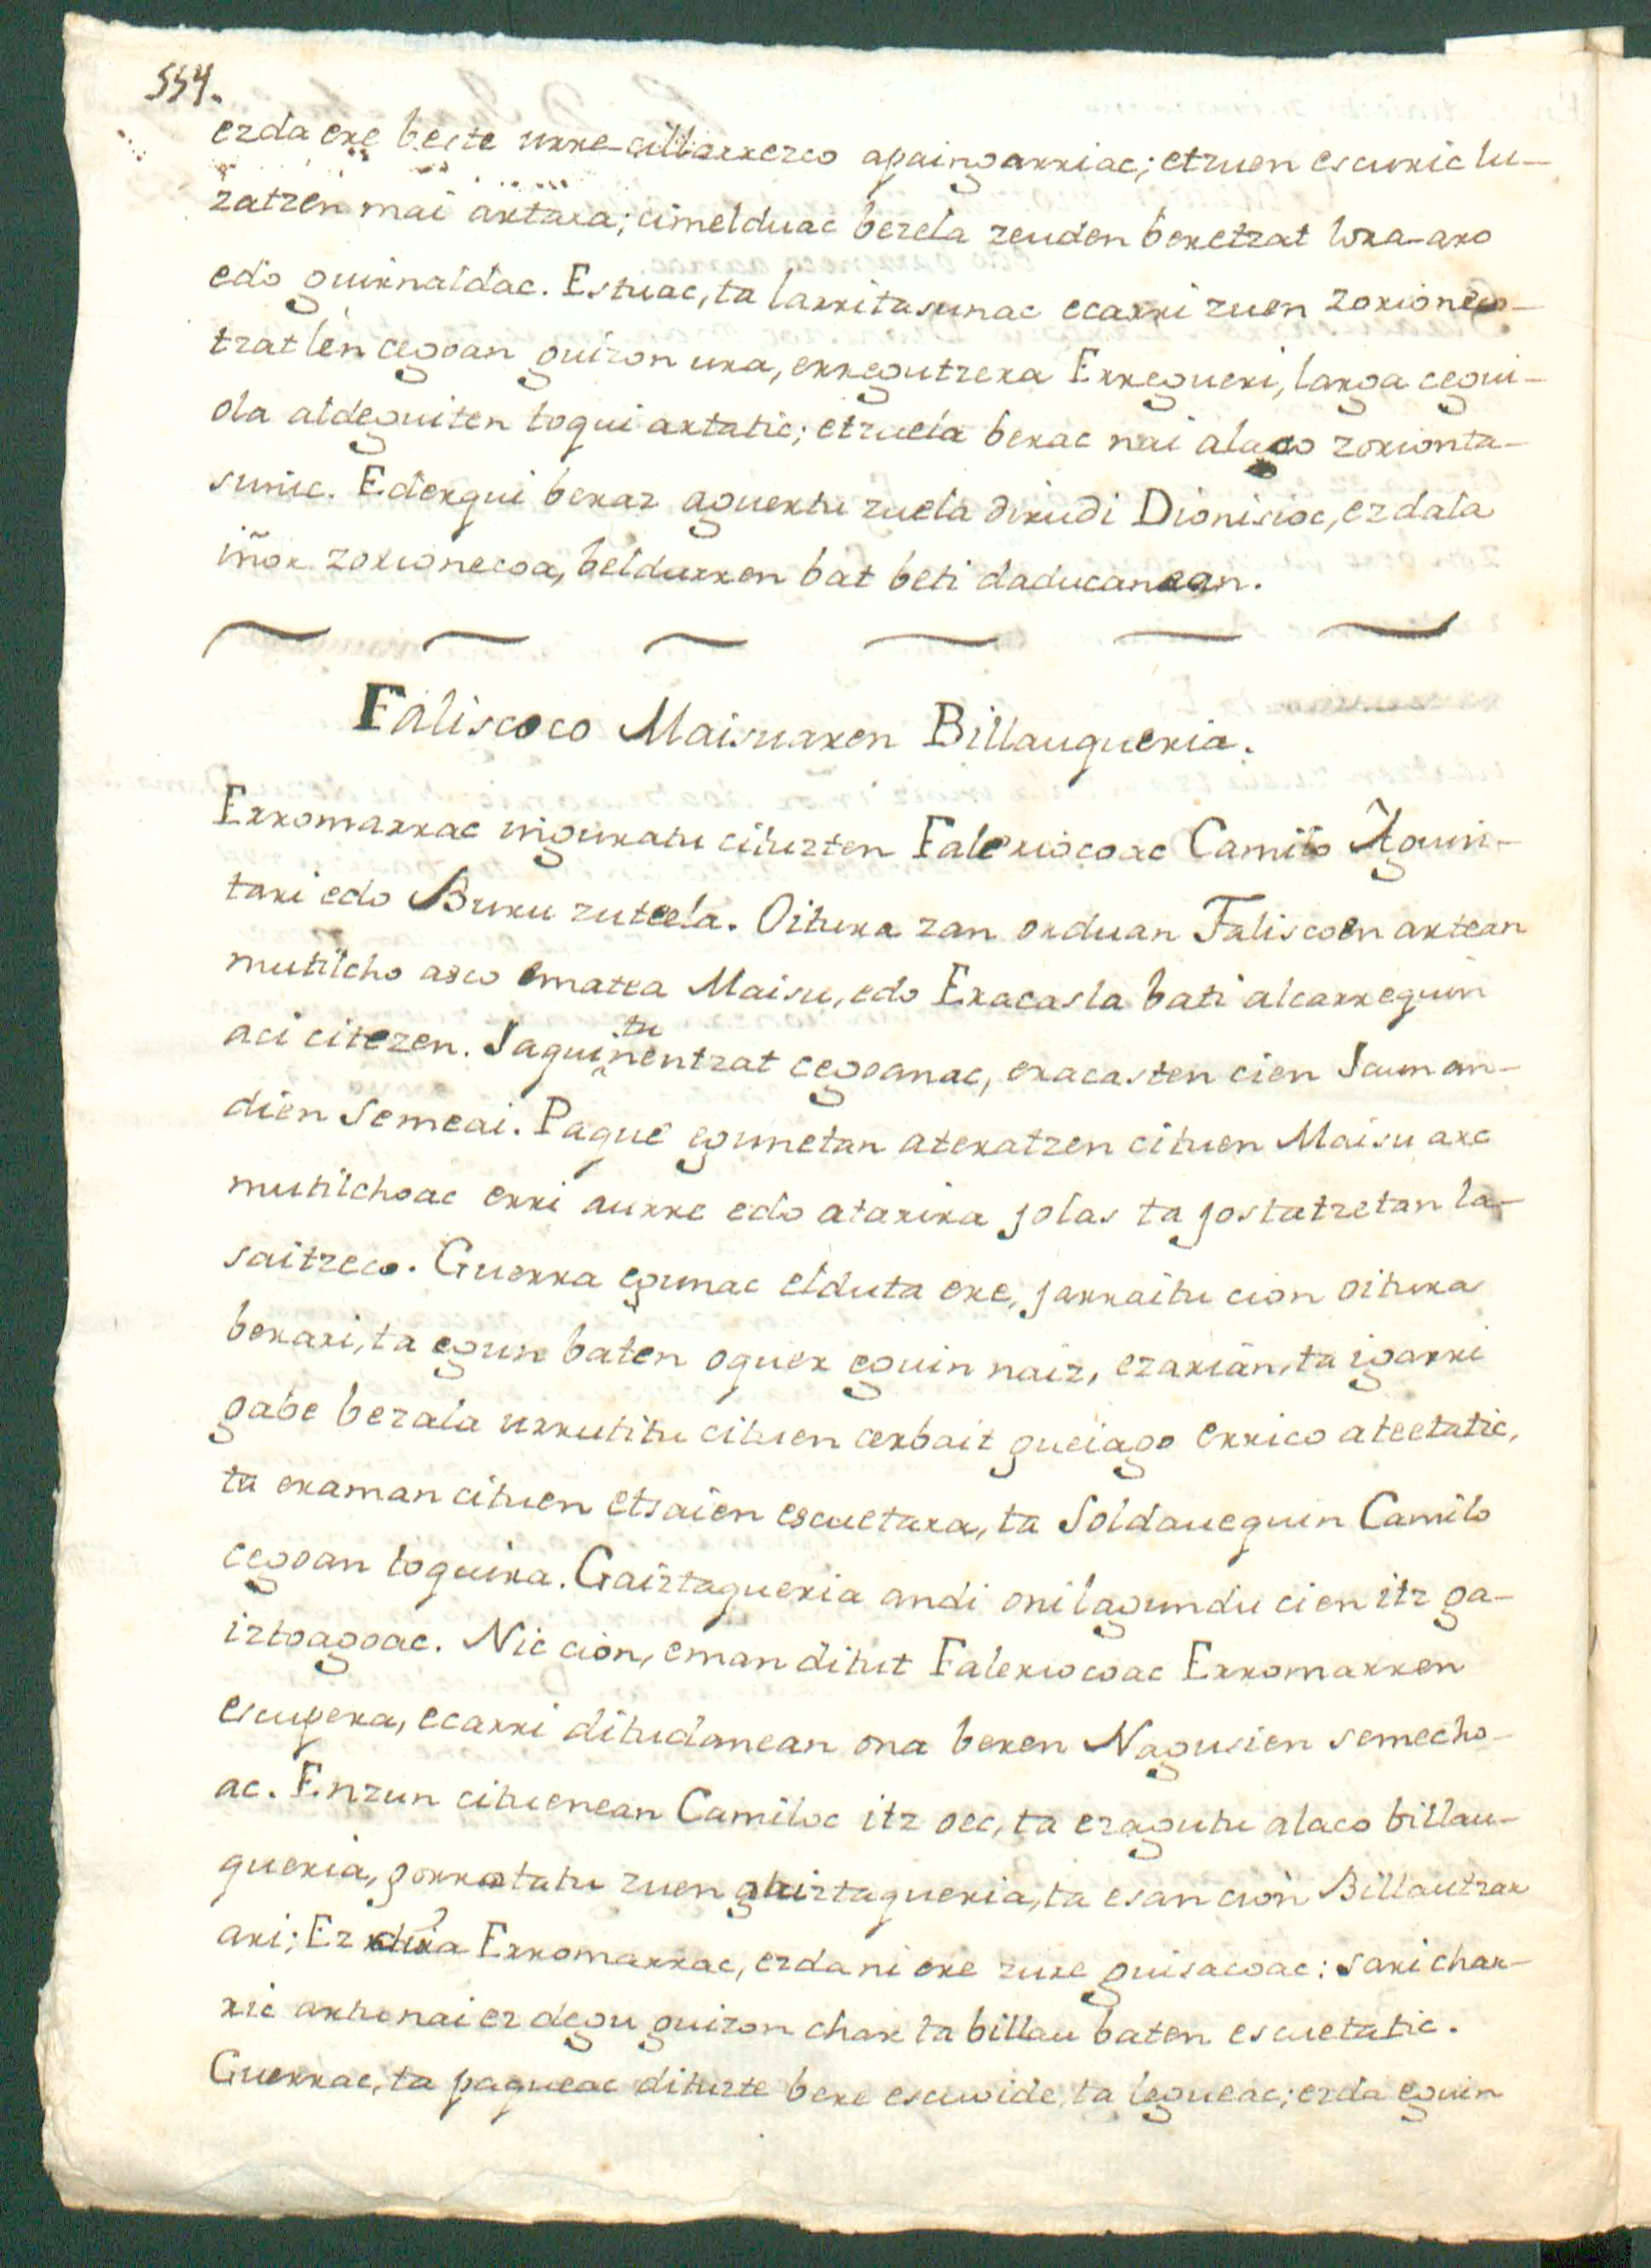 554.
ezda ere beste urre-cillarrezco apaingarriac; etzuen escuric lu-
zatzen mai artara; cimelduac bezela zeuden beretzat lora-aro
edo guirnaldac. Estuac, ta larritasunac ecarri zuen zorioneco-
tzat len cegoan guizon ura, erregutzera Erregueri, larga cegui-
ola aldeguiten toqui artatic; etzuela berac nai alaco zorionta-
sunic. Ederqui beraz aguertu zuela dirudi Dionisioc, ezdala
iñor zorionecoa, beldurren bat beti daducanean.
Faliscoco Maisuaren Billaugueria.
Erromarrac inguratu cituzten Faleriocoac Camilo Aguin-
tari edo Buru zuteela. Oitura zan orduan Faliscoen artean
mutilcho asco ematea Maisu, edo Eracasla bati alcarrequin
aci citezen. Jaquintunentzat cegoanac, eracasten cien Jaun an-
dien Semeai. Paque egunetan ateratzen cituen Maisu arc
mutilchoac erri aurre edo atarira jolas ta jostatzetan la-
saitzeco. Guerra egunac elduta ere, jarraitu cion oitura
berari, ta egun baten oquer eguin naiz, ezarian, ta igarri
gabe bezala urrutitu cituen cerbait gueiago errico ateetatic,
ta eraman cituen etsaien escuetara, ta Soldauequin Camilo
cegoan toquira. Gaiztaqueria andi oni lagundu cien itz ga-
iztoagoac. Nic cion, eman ditut Faleriocoac Erromarren
escupera, ecarri ditudanean ona beren Nagusien semecho-
ac. Enzun cituenean Camiloc itz oec, ta ezagutu alaco billau-
queria, gorrotatu zuen gaiztaqueria, ta esan cion Billautzar
ari; Ez dira Erromarrac, ezda ni ere zure guisacoac: sari char-
ric artu nai ez degu guizon char ta billau baten escuetatic.
Guerrac, ta paqueac dituzte bere escuvide, ta legueac; ezda eguin